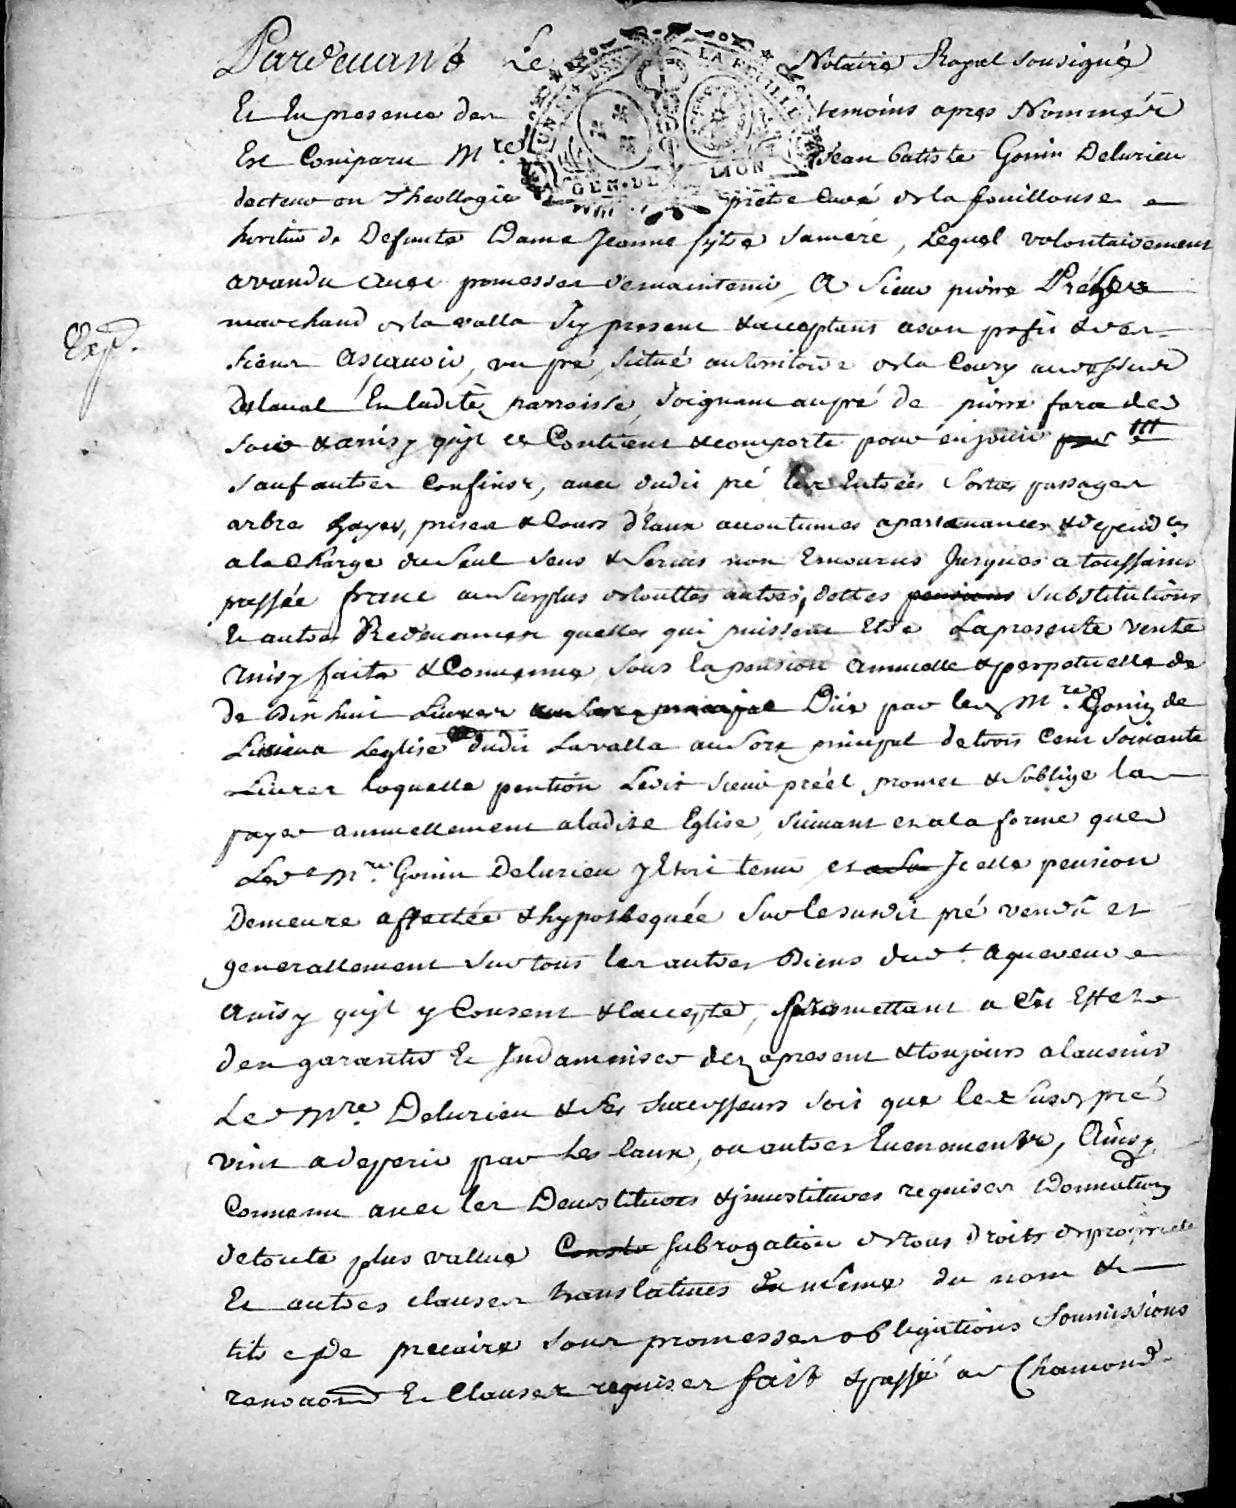 Pardevant Le Notaire Royal sousigné
Et En presence des temoins apres Nommés
Est Comparu Mre Jean batiste Gonin Delurieu
docteur en Theollogie pretre Curé de la fouillouse
heritier de Defunte Dame Jeanne sa mere, Lequel volontairement
a vandu avec promesses de maintenir, A Sieur pierre Préher
marchand de la valla Icy present & acceptant a son profit & des
siens Ascavoir, un pré, situé au territoire de la Coury au dessus
Delaval En ladite parroisse, Joignant au pré de pierre fara de
soir & ainsy qu'jl se Contient & comporte pour en jouir
sauf autres Confins, avec dudit pré les Entrées sorties passages
arbres hayes, prises & Cours d'Eaux accoutumés apartenances & depend.es
a la Charge du seul sens & servis non Encourus Jusques a toussaint
passée franc au surplus de touttes autres dettes pensions substitutions
Et autres Redevances quelles qui puissent Etre La presente vente
Ainsy faite & Convenue sous la pension annuelle & perpetuelle de
de Dix huit Livres au sort principal Düe par led Mre Gonin de
Lurieu a Leglise dudit Lavalla au sort principal de trois Cent soixante
Livres laquelle pention Ledit sieur préel promet & soblige la
payer annuellement a ladite Eglise, suivant et a la forme que
Led Mre Gonin Delurieu y Etoit tenu, et Jcelle pension
Demeure affectée & hypothequée sur le susdit pré vendu et
generallement sur tous les autres Biens dud.t aquereur
Ainsy qu'jl y Consent & l'accepte, promettant a Cet Effet
den garantir Et Indamniser dez apresent & toujours a lavenir
Led Mre. Delurieu & ses successeurs soit que led susd pré
vint a deperir par Les Eaux, ou autres Evenements, Ainsy
Convenu avec les Devestitures & jnvestitures requises Donnation
de toute plus vallue subrogation de tous droits de proprieté
Et autres clauses translatives du nom &
titre de precaire sous promesses obligations soumissions
renond Et Clauses requises fait & passé a St Chamond
Exp.
GEN. DE LION
LA FEUILLE